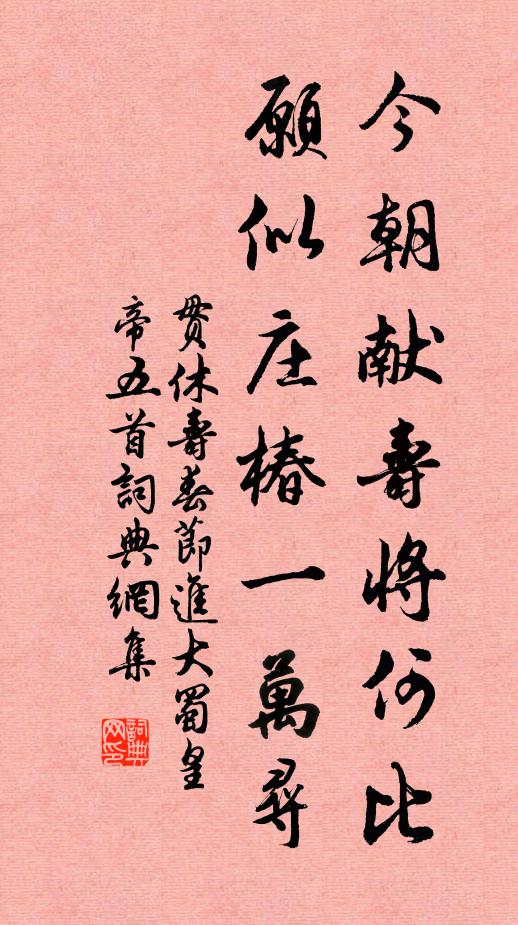 今朝献壽將何比
願似庄椿一萬尋
貫休壽春節進大蜀皇
帝五首詞典網集
詞典
网印